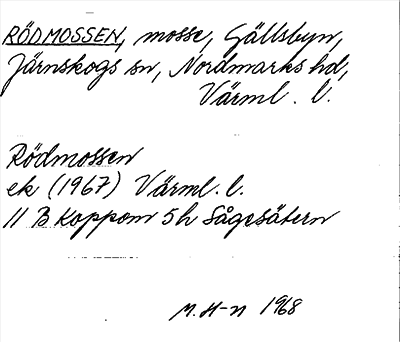 RÖDMOSSEN, mosse, Gällsbyn,
Järnskogs sn, Nordmarks hd,
Värml. l.
Rödmossen
ek (1967) Värml. l.
11 B Koppom 5h Sågesätern
M. H-n 1968